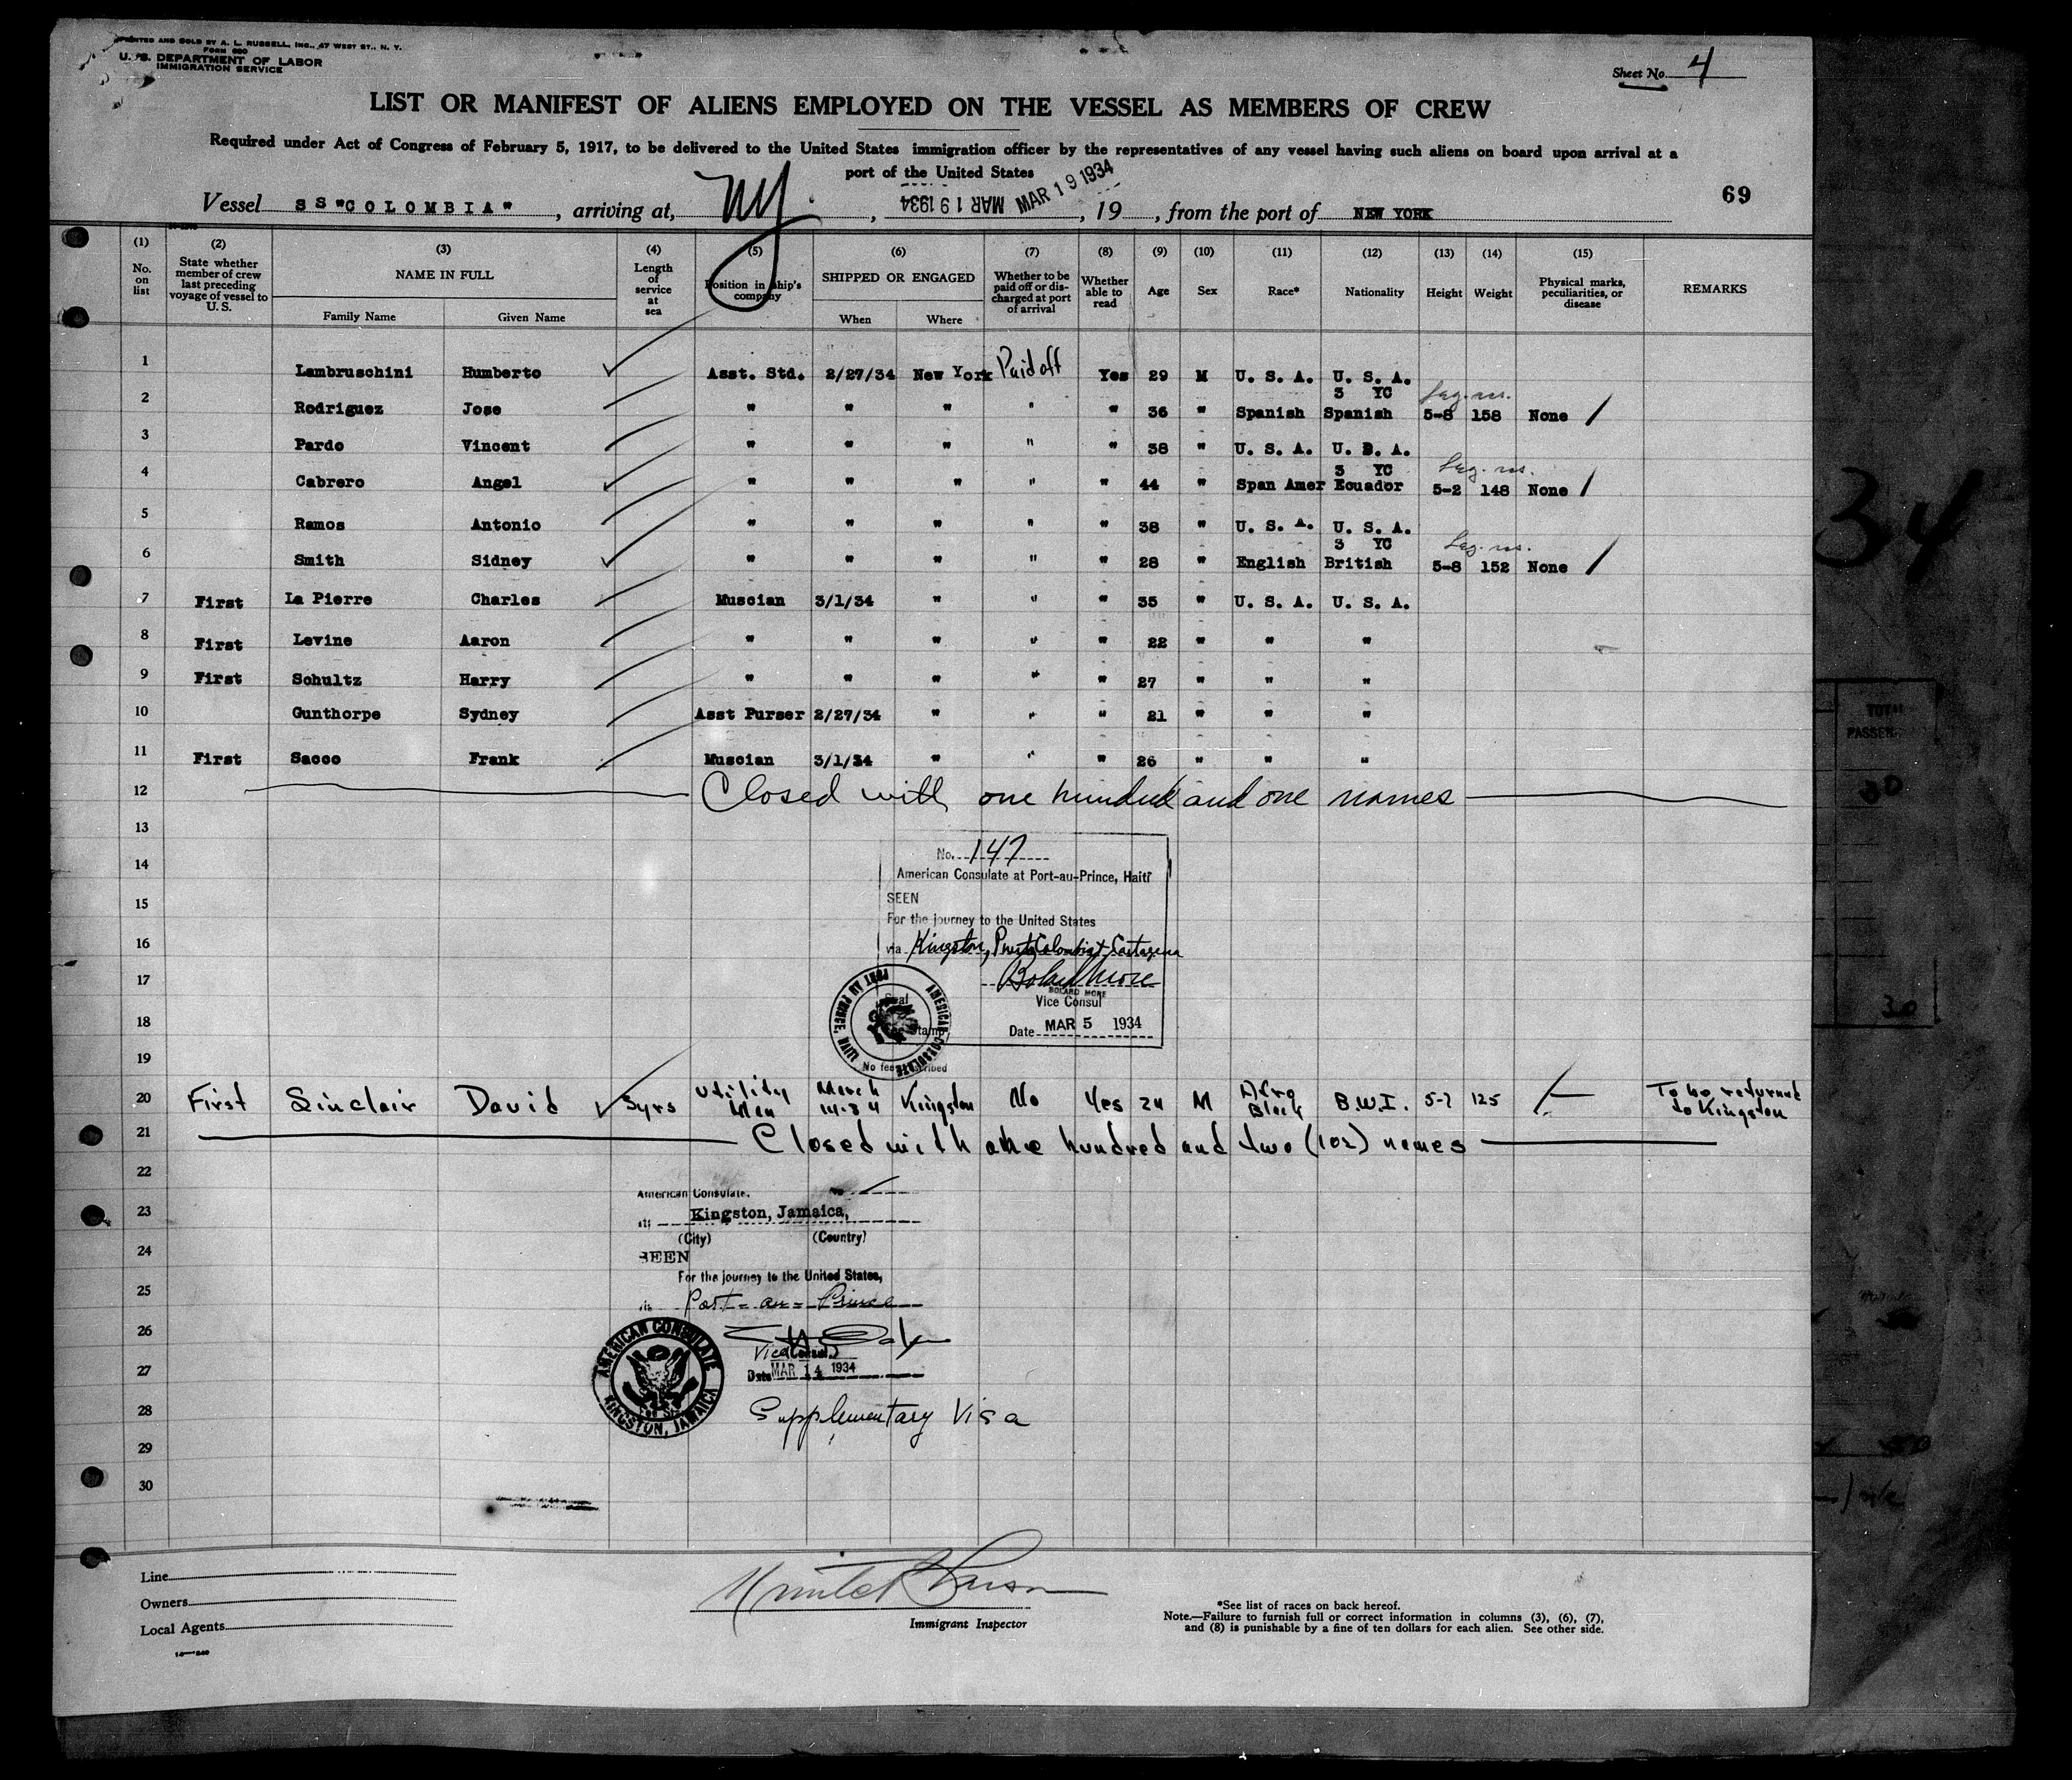 PRINTED AND SOLD BY A. L. RUSSELL, INC., 47 WEST ST., N. Y.
FORM 680
U. S. DEPARTMENT OF LABOR
IMMIGRATION SERVICE
Sheet No. 4
LIST OR MANIFEST OF ALIENS EMPLOYED ON THE VESSEL AS MEMBERS OF CREW
Required under Act of Congress of February 5, 1917, to be delivered to the United States immigration officer by the representatives of any vessel having such aliens on board upon arrival at a
port of the United States
69
Vessel SS "COLOMBIA", arriving at, NY, MAR 19 1934 MAR 19 1934, 19 , from the port of NEW YORK
(1) (2) (3) (4) (5) (6) (7) (8) (9) (10) (11) (12) (13) (14) (15)
No. on list State whether member of crew last preceding voyage of vessel to U. S. NAME IN FULL Length of service at sea Position in ship's company SHIPPED OR ENGAGED Whether to be paid off or discharged at port of arrival Whether able to read Age Sex Race* Nationality Height Weight Physical marks, peculiarities, or disease REMARKS
Family Name Given Name When Where
1 Lambruschini Humberto Asst. Std. 2/27/34 New York Paid off Yes 29 M U. S. A. U. S. A.
3 YC
2 Rodriguez Jose " " " " " 36 " Spanish Spanish 5-8 158 None
3 Pardo Vincent " " " " " 38 " U. S. A. U. S. A.
3 YC
4 Cabrero Angel " " " " " 44 " Span Amer Ecuador 5-2 148 None
5 Ramos Antonio " " " " " 38 " U. S. A. U. S. A.
3 YC
6 Smith Sidney " " " " " 28 " English British 5-8 152 None
7 First La Pierre Charles Muscian 3/1/34 " " " 35 " U. S. A. U. S. A.
8 First Levine Aaron " " " " " 22 " " "
9 First Schultz Harry " " " " " 27 " " "
10 Gunthorpe Sydney Asst Purser 2/27/34 " " " 21 " " "
11 First Sacco Frank Muscian 3/1/34 " " " 26 " " "
12 Closed with one hundred and one names
13
No. 147
14
American Consulate at Port-au-Prince, Haiti
SEEN
15
For the journey to the United States
16
via Kingston, Puerto Colombia & Cartagena
17
BOLARD MORE
Vice Consul
18
Date MAR 5 1934
AMERICAN CONSULATE PORT AU PRINCE, HAITI
Seal
Stamp
19
No fee prescribed
20 First Sinclair David 3yrs Utility Man March 14-34 Kingston No Yes 24 M Afro Black B.W.I. 5-7 125 To be returned to Kingston
21 Closed with one hundred and two (102) names
22
American Consulate.
23
at Kingston, Jamaica,
(City) (Country)
24
SEEN
For the journey to the United States,
25
via Port-au-Prince
26
Vice Consul
27
Date MAR 14 1934
AMERICAN CONSULATE KINGSTON, JAMAICA
28
Supplementary Visa
29
30
Line
Owners
Local Agents
Immigrant Inspector
*See list of races on back hereof.
Note.—Failure to furnish full or correct information in columns (3), (6), (7),
and (8) is punishable by a fine of ten dollars for each alien. See other side.
34
TOTAL
PASSEN
30
30